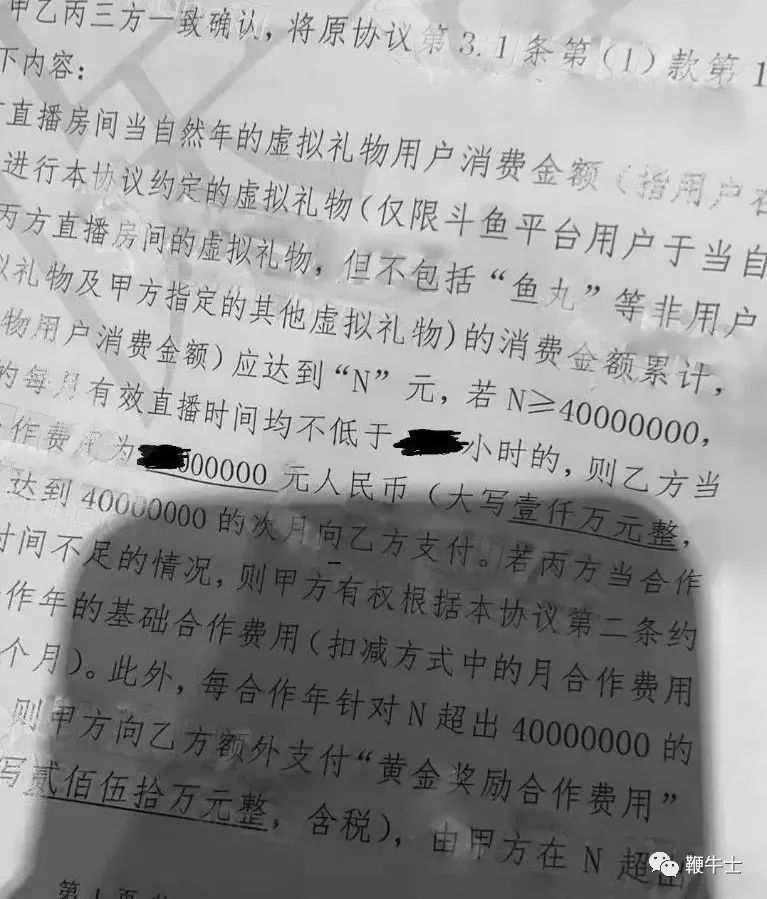 甲乙丙三方一致确认，将原协议第3.1条第（1）款第1
下内容：
直播房间当自然年的虚拟礼物用户消费金额（指用户在
进行本协议约定的虚拟礼物（仅限斗鱼平台用户于当自
丙方直播房间的虚拟礼物，但不包括“鱼丸”等非用户
以礼物及甲方指定的其他虚拟礼物）的消费金额累计，
物用户消费金额）应达到“N”元，若N≥40000000，
的每月有效直播时间均不低于 小时的，则乙方当
作费用为 000000 元人民币（大写壹仟万元整，
达到40000000的次月向乙方支付。若丙方当合作
时间不足的情况，则甲方有权根据本协议第二条约
作年的基础合作费用（扣减方式中的月合作费用
个月）。此外，每合作年针对N超出40000000的
则甲方向乙方额外支付“黄金奖励合作费用”
写贰佰伍拾万元整，含税），由甲方在N超出
第1页
鞭牛士